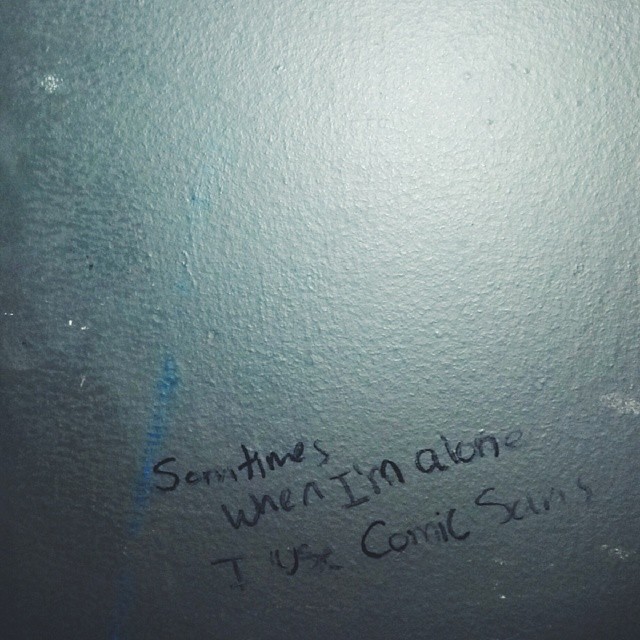 Somtimes
when I'm alone
I use Comic Sans